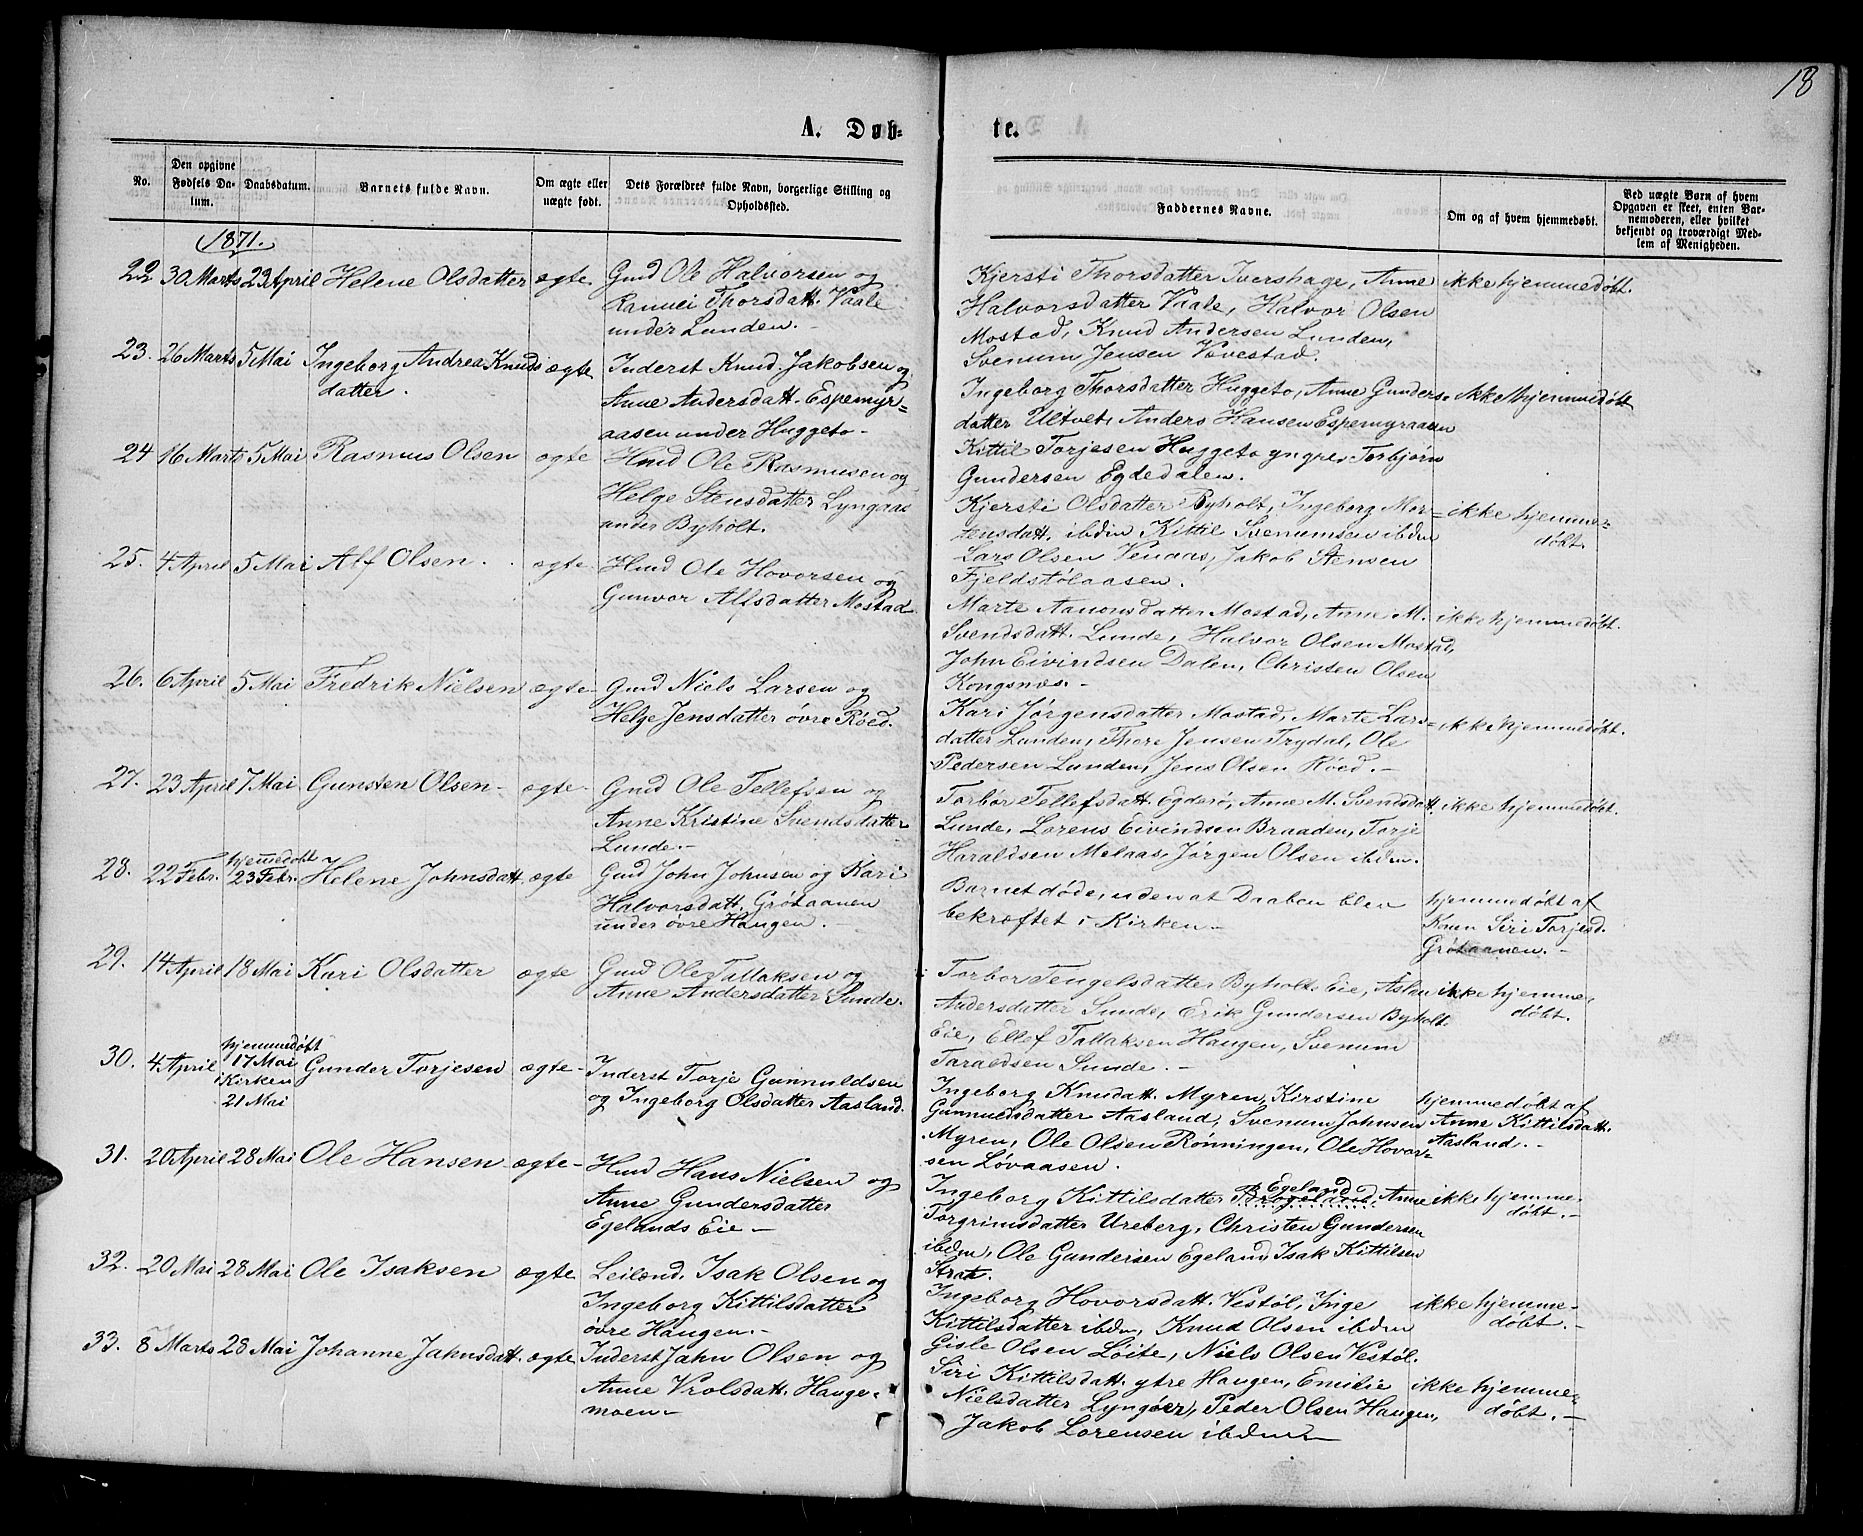 18
A. Døb-
te.
No.
Den opgivne Fødsels Da-tum.
Daabsdatum.
Barnets fulde Navn.
Om ægte eller uægte født.
Dets Forældres fulde Navn, borgerlige Stilling og Opholdssted.
Faddernes Navne.
Om og af hvem hjemmedøbt.
Ved uægte Børn af hvem Opgaven er skeet, enten Bar-nemoderen, eller hvilket bekjendt og troværdigt Med-lem af Menigheden.
1871.
22 30 Marts 23 April Helene Olsdatter ægte
Gmd Ole Halvorsen og
Rannei Thorsdatt. Vaale
under Lunden.
Kjersti Thorsdatter Ivershage, Anne
Halvorsdatter Vaale, Halvor Olsen
Mostad, Knud Andersen Lunden,
Svenum Jensen Vovestad.
ikke hjemmedøbt.
23. 26 Marts 5 Mai Ingeborg Andrea Knuds
datter.
ægte
Inderst Knud Jakobsen og
Anne Andersdatt. Espemyr=
aasen under Huggeto-
Ingeborg Thorsdatter Huggeto, Anne Gunders=
datter Ultvet, Anders Hansen Espemyraasen
Kittil Torjesen Huggeto yngre, Torbjørn
Gundersen Egdedalen.
ikke hjemmedøbt
24 16 Marts 5 Mai Rasmus Olsen ægte
Hmd Ole Rasmusen og
Helge Stensdatter Lyngaas
under Byholt.
Kjersti Olsdatter Byholt, Ingeborg Mor=
tensdatt. ibdm Kittil Svenumsen ibdm
Lars Olsen Venaas, Jakob Stensen
Fjeldstølaasen.
ikke hjemme=
døbt.
25. 4 April 5 Mai Alf Olsen. ægte
Hmd Ole Hovorsen og
Gunvor Alfsdatter Mostad
Marte Aanonsdatter Mostad, Anne M.
Svendsdatt. Lunde, Halvor Olsen Mostad,
John Eivindsen Dalen, Christen Olsen
Kongsnæs.-
ikke hjemmedøbt.
26. 6 April 5 Mai Fredrik Nielsen ægte-
Gmd Niels Larsen og
Helge Jensdatter øvre Røed.
Kari Jørgensdatter Mostad, Marte Lars=
datter Lunden, Thore Jensen Trydal, Ole
Pedersen Lunden, Jens Olsen Røed.-
ikke hjemmedøbt.
27. 23 April 7 Mai Gunsten Olsen- ægte-
Gmd Ole Tellefsen og
Anne Kristine Svendsdatter
Lunde.-
Torbor Tellefsdatt. Egderø, Anne M. Svendsdatt.
Lunde, Lorens Eivindsen Braaden, Torje
Haraldsen Melaas, Jørgen Olsen ibdm.
ikke hjemmedøbt.
28. 22 Febr. hjemmedøbt
23 Febr. Helene Johnsdatt. ægte
Gmd John Johnsen og Kari
Halvorsdatt. Grøtaanen
under øvre Haugen.-
Barnet døde, uden at Daaben blev
bekræftet i Kirken.-
hjemmedøbt af
Konen Siri Torjesd.
Grøtaanen.-
29. 14 April 18 Mai Kari Olsdatter ægte
Gmd Ole Tallaksen og
Anne Andersdatter Sunde.
Torbor Tengelsdatter Byholt Eie, Aslau
Andersdatter Sunde, Erik Gundersen Byholt
Eie, Ellef Tallaksen Haugen, Svenum
Taraldsen Sunde.-
ikke hjemme=
døbt.
30. 4 April hjemmedøbt
17 Mai
i Kirken
21 Mai
Gunder Torjesen ægte-
Inderst Torje Gunnuldsen
og Ingeborg Olsdatter Aasland.
Ingeborg Knudatt. Myren, Kirstine
Gunnuldsdatter Aasland, Svenum Johnsen
Myren, Ole Olsen Rønningen, Ole Hovor=
sen Løvaasen.
hjemmedøbt af
Anne Kittilsdatt.
Aasland.-
31. 20 April 28 Mai Ole Hansen ægte-
Hmd Hans Nielsen og
Anne Gundersdatter
Egelands Eie-
Egeland
Ingeborg Kittilsdatter Brogeland, Anne
Torgrimsdatter Ureberg, Christen Gundersen
ibdm, Ole Gundersen Egeland, Isak Kittilsen
Strat.
ikke hjemme=
døbt.-
32. 20 Mai 28 Mai Ole Isaksen ægte
Leilænd. Isak Olsen og
Ingeborg Kittilsdatter
øvre Haugen.-
Ingeborg Hovorsdatt. Vestøl, Inge
Kittilsdatter ibdm, Knud Olsen ibdm
Gisle Olsen Løite, Niels Olsen Vestøl.
ikke hjemme=
døbt.-
33. 8 Marts 28 Mai Johanne Jahnsdatt. ægte
Inderst Jahn Olsen og
Anne Vrolsdatt. Hauge=
moen-
Siri Kittilsdatt. ytre Haugen, Emilie
Nielsdatter Lyngøer, Peder Olsen Haugen,
Jakob Lorensen ibdm-
ikke hjemme=
døbt.-